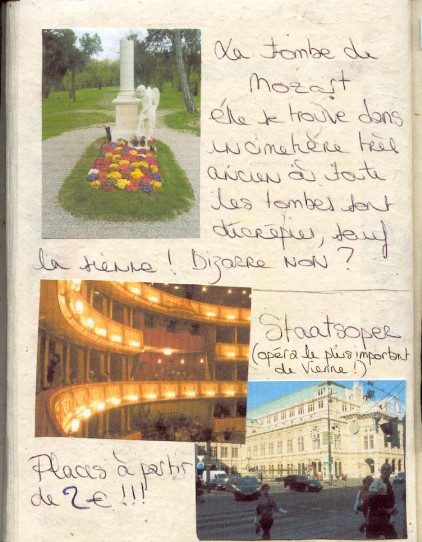 La tombe de
Mozart
elle se trouve dans
un cimetière très
ancien où toute
les tombes sont
décrépies, sauf
la sienne ! Bizarre non ?
Staatsoper
(opéra le plus important
de Vienne !)
Places à partir
de 2 € !!!